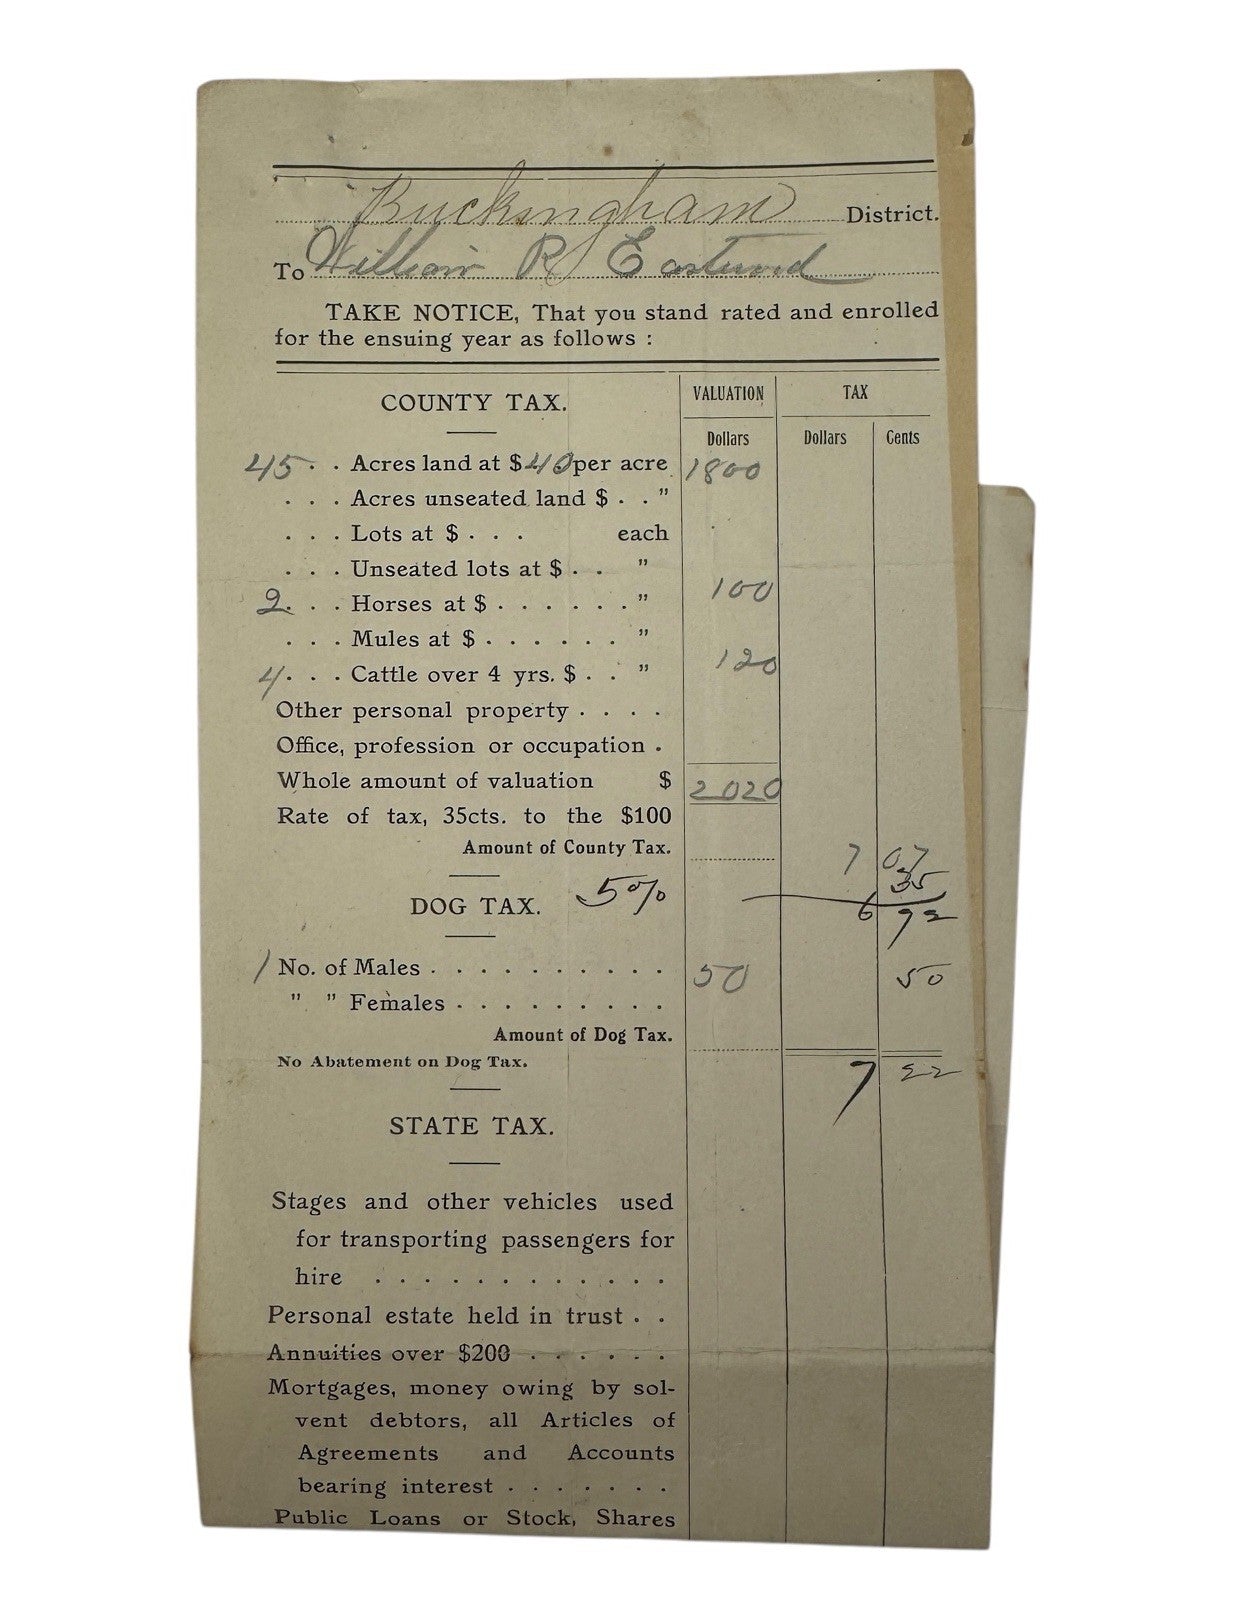 Buckingham District.
To William R Eastwood
TAKE NOTICE, That you stand rated and enrolled
for the ensuing year as follows :
COUNTY TAX.
VALUATION TAX
Dollars Dollars Cents
45 . . Acres land at $40 per acre 1800
. . . Acres unseated land $ . . "
. . . Lots at $ . . . each
. . . Unseated lots at $ . . "
2. . . Horses at $ . . . . . . " 100
. . . Mules at $ . . . . . . "
4. . . Cattle over 4 yrs. $ . . " 120
Other personal property . . . .
Office, profession or occupation .
Whole amount of valuation $ 2020
Rate of tax, 35cts. to the $100
Amount of County Tax. 7 07
35
DOG TAX. 5% 6 72
1 No. of Males . . . . . . . . . . 50 50
" " Females . . . . . . . . .
Amount of Dog Tax.
No Abatement on Dog Tax. 7 22
STATE TAX.
Stages and other vehicles used
for transporting passengers for
hire . . . . . . . . . . . .
Personal estate held in trust . .
Annuities over $200 . . . . . .
Mortgages, money owing by sol-
vent debtors, all Articles of
Agreements and Accounts
bearing interest . . . . . . .
Public Loans or Stock, Shares